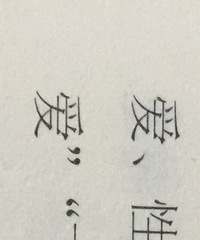 爱、性
爱”“